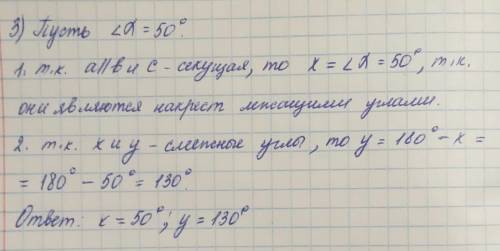 3) Пусть ∠α = 50°.
1. т.к. a||b и c - секущая, то x = ∠α = 50°, т.к.
они являются накрест лежащими углами.
2. т.к. x и y - смежные углы, то y = 180° - x =
= 180° - 50° = 130°.
Ответ: x = 50°; y = 130°